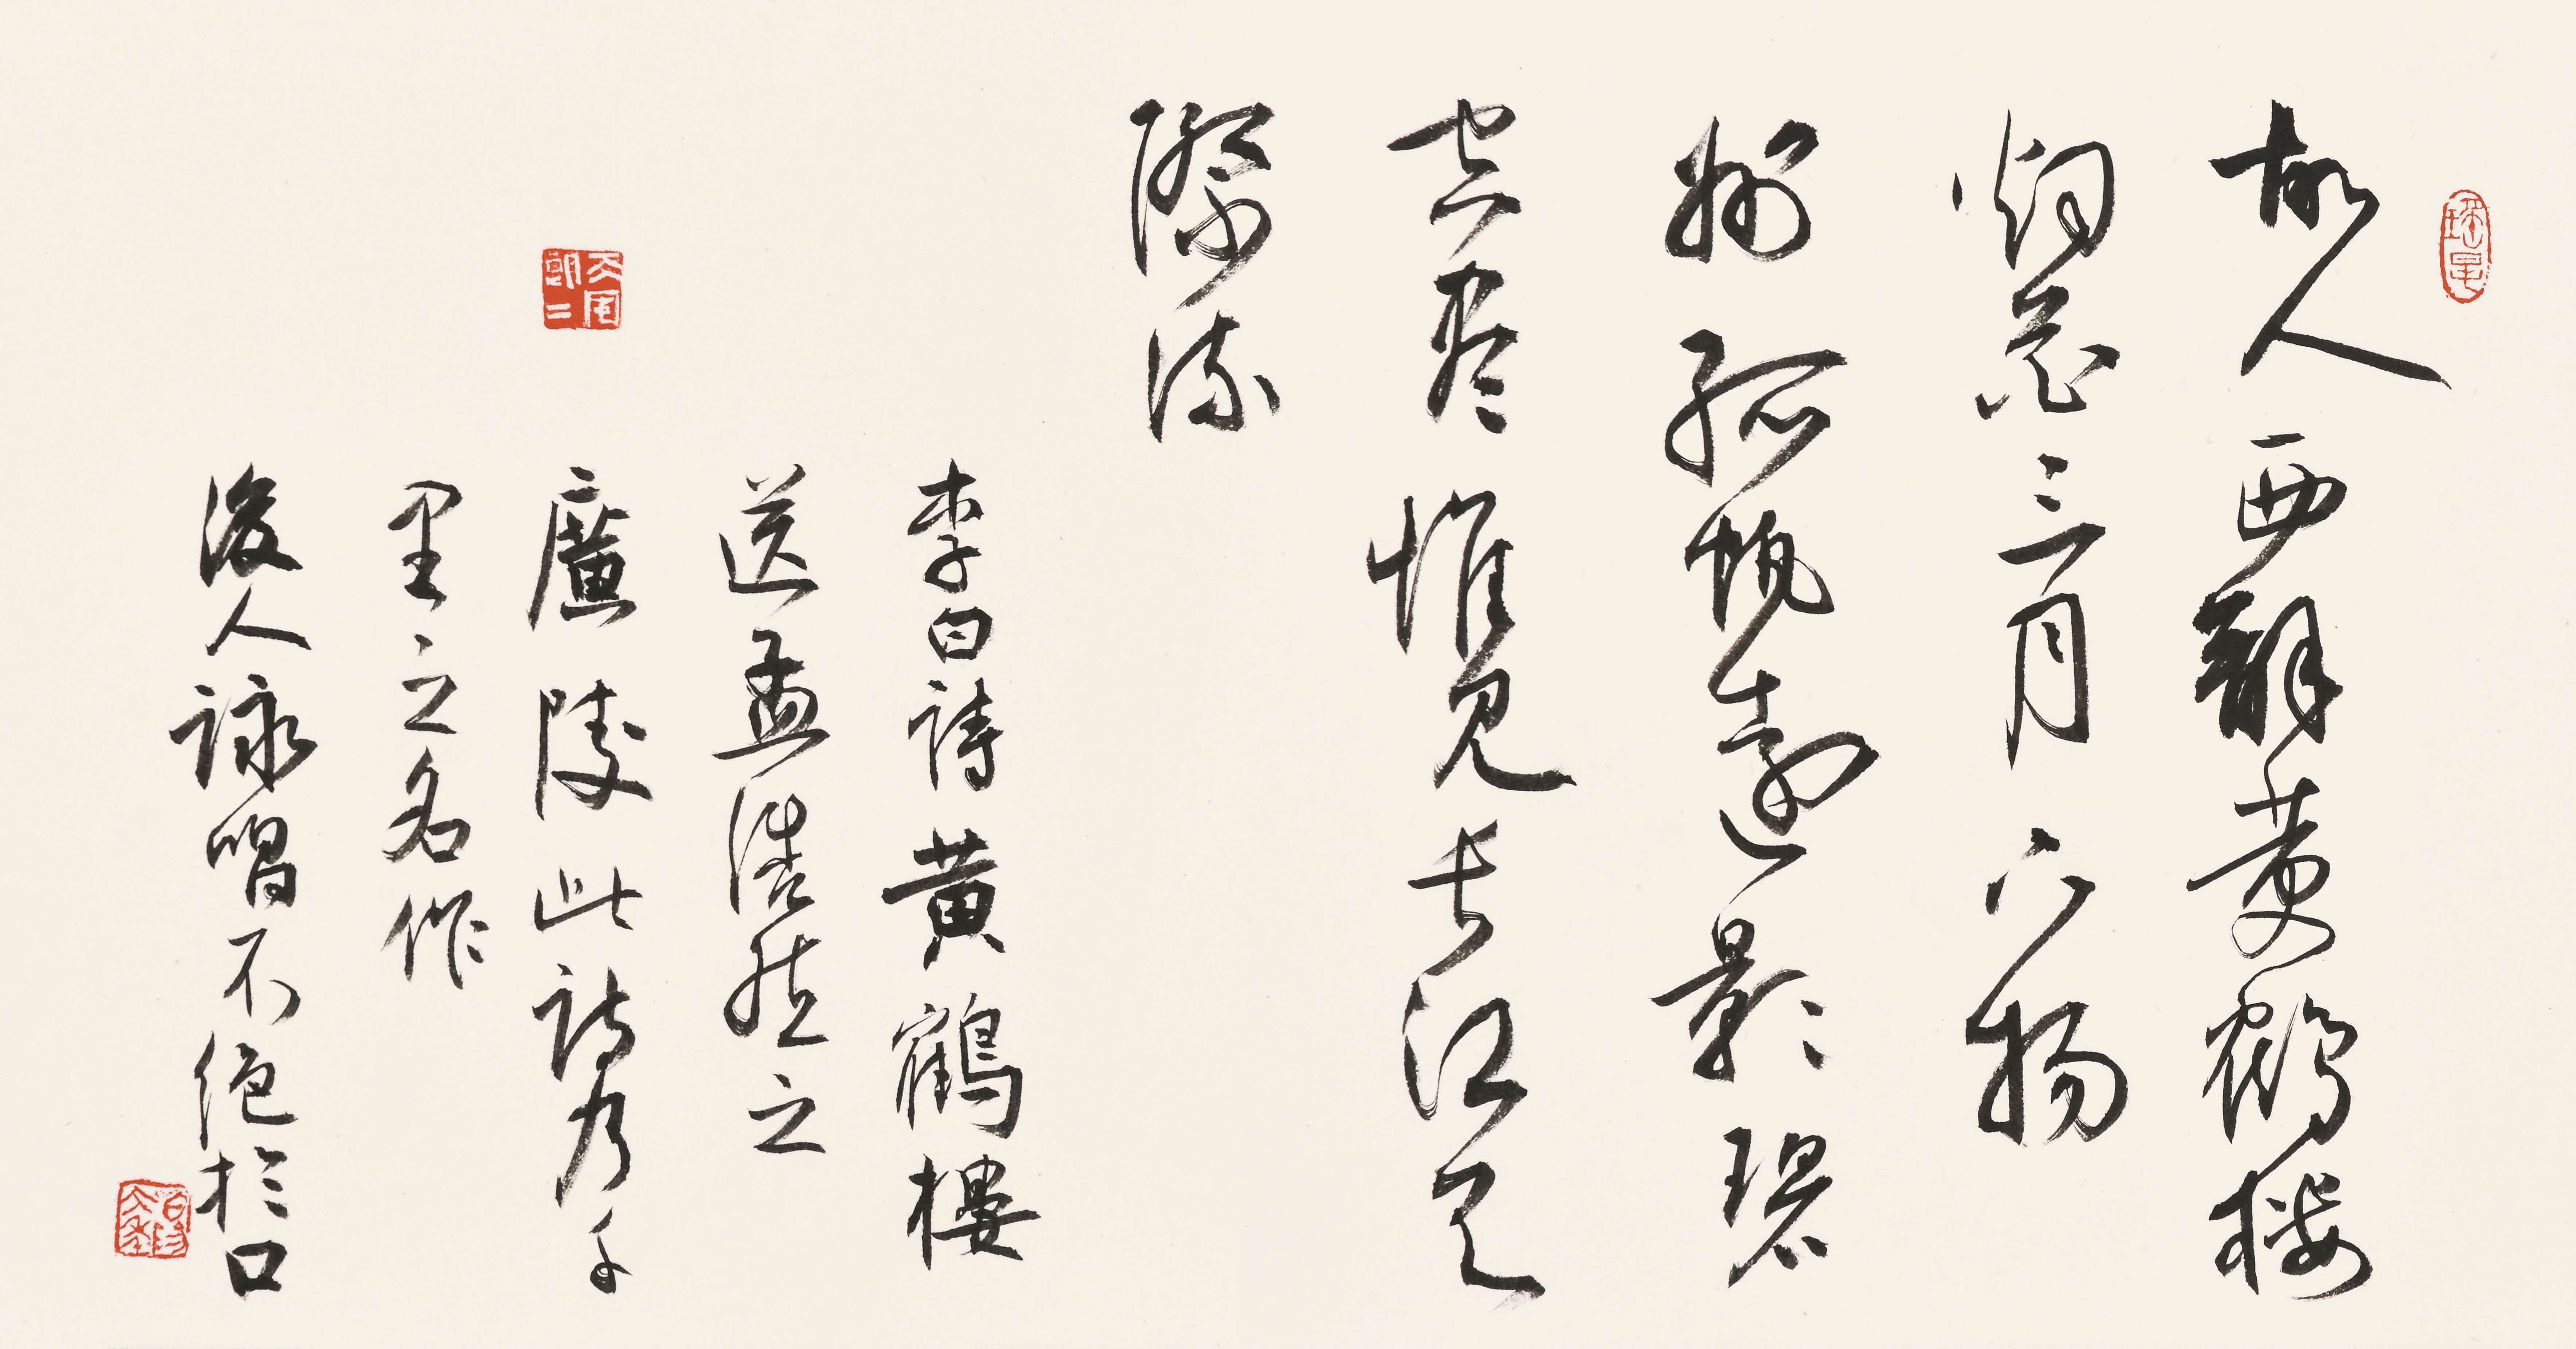 故人西辭黄鶴楼
烟花三月下揚
州孤帆遠影碧
空尽惟見長江天
際流
李白詩黄鶴樓
送孟浩然之
廣陵此詩乃千
里之名作
後人詠唱不絶於口